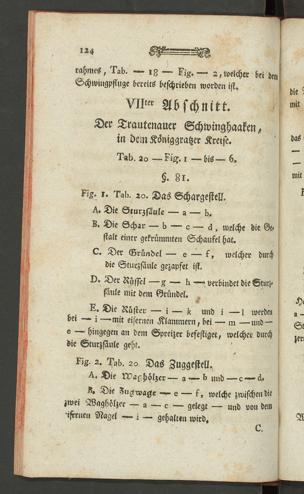 124
rahmes, Tab. — 18 — Fig. — 2, welcher bei dem
Schwingpfluge bereits beschrieben worden ist.
VIIter Abschnitt.
Der Trautenauer Schwinghaaken,
in dem Königgratzer Kreise.
Tab. 20 — Fig. 1 — bis — 6.
§. 81.
Fig. 1. Tab. 20. Das Schargestell.
A. Die Sturzsäule — a — b.
B. Die Schar — b — c — d, welche die Ge-
stalt einer gekrümmten Schaufel hat.
C. Der Gründel — e — f, welcher durch
die Sturzsäule gezapfet ist.
D. Der Rüssel — g — h — verbindet die Sturz-
säule mit dem Gründel.
E. Die Rüster — i — k und i — l werden
bei — i — mit eisernen Klammern, bei — m — und —
e — hingegen an dem Spreizer befestiget, welcher durch
die Sturzsäule geht.
Fig. 2. Tab. 20 Das Zuggestell.
A. Die Waghölzer — a — b und — c — d.
B. Die Zugwage — e — f, welche zwischen die
zwei Waghölzer — a — c — gelegt — und von dem
eisernen Nagel — i — gehalten wird.
C.